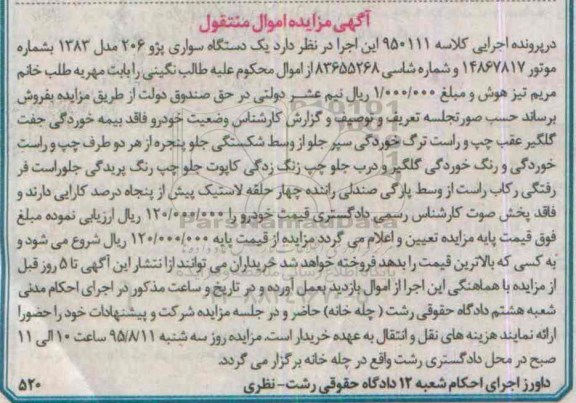 آگهی مزایده اموال منتقول
درپرونده اجرایی کلاسه ۹۵۰۱۱۱ این اجرا در نظر دارد یک دستگاه سواری پژو ۲۰۶ مدل ۱۳۸۳ بشماره
موتور ۱۴۸۶۷۸۱۷ و شماره شاسی ۸۳۶۵۵۲۶۸ از اموال محکوم علیه طالب نگینی را بابت مهریه طلب خانم
مریم تیز هوش و مبلغ ۱/۰۰۰/۰۰۰ ریال نیم عشر دولتی در حق صندوق دولت از طریق مزایده بفروش
برساند حسب صورتجلسه تعریف و توصیف و گزارش کارشناس وضعیت خودرو فاقد بیمه خوردگی جفت
گلگیر عقب چپ و راست ترگ خوردگی سپر جلو از وسط شکستگی جلو پنجره از هر دو طرف چپ و راست
خوردگی و رنگ خوردگی گلگیر و درب جلو چپ زنگ زدگی کاپوت جلو چپ رنگ پریدگی جلوراست فر
رفتگی رکاب راست از وسط پارگی صندلی راننده چهار حلقه لاستیک پیش از پنجاه درصد کارایی دارند و
فاقد پخش صوت کارشناس رسمی دادگستری قیمت خودرو را ۱۲۰/۰۰۰/۰۰۰ ریال ارزیابی نموده مبلغ
فوق قیمت پایه مزایده تعیین و اعلام می گردد مزایده از قیمت پایه ۱۲۰/۰۰۰/۰۰۰ ریال شروع می شود و
به کسی که بالاترین قیمت را بدهد فروخته خواهد شد خریداران می توانند از انتشار این آگهی تا ۵ روز قبل
از مزایده با هماهنگی این اجرا از اموال بازدید بعمل آورده و در تاریخ و ساعت مذکور در اجرای احکام مدنی
شعبه هشتم دادگاه حقوقی رشت ( چله خانه) حاضر و در جلسه مزایده شرکت و پیشنهادات خود را حضورا
ارائه نمایند هزینه های نقل و انتقال به عهده خریدار است. مزایده روز سه شنبه ۹۵/۸/۱۱ ساعت ۱۰ الی ۱۱
صبح در محل دادگستری رشت واقع در چله خانه برگزار می گردد.
داورز اجرای احکام شعبه ۱۲ دادگاه حقوقی رشت- نظری
۵۲۰
ParsNamadData